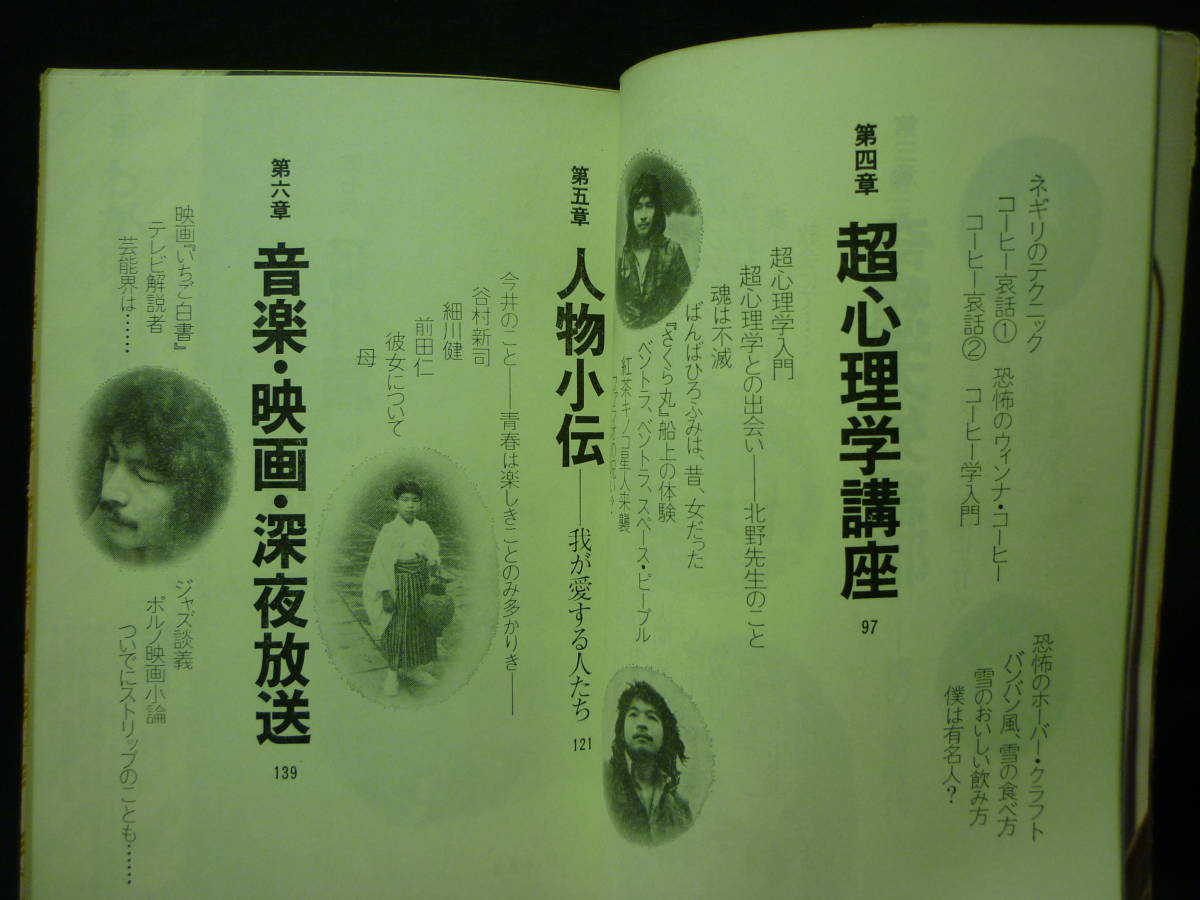 ネギリのテクニック
コーヒー哀話① 恐怖のウィンナ・コーヒー
コーヒー哀話② コーヒー学入門
恐怖のホーバー・クラフト
バンバン風、雪の食べ方
雪のおいしい飲み方
僕は有名人？
第四章 超心理学講座 97
超心理学入門
超心理学との出会い——北野先生のこと
魂は不滅
ばんばひろふみは、昔、女だった
『さくら丸』船上の体験
ベントラ、ベントラ、スペース・ピープル
紅茶キノコ星人来襲
第五章 人物小伝——我が愛する人たち 121
今井のこと——青春は楽しきことのみ多かりき——
谷村新司
細川健
前田仁
彼女について
母
第六章 音楽・映画・深夜放送 139
映画『いちご白書』
テレビ解説者
芸能界は……
ジャズ談義
ポルノ映画小論
ついでにストリップのことも……